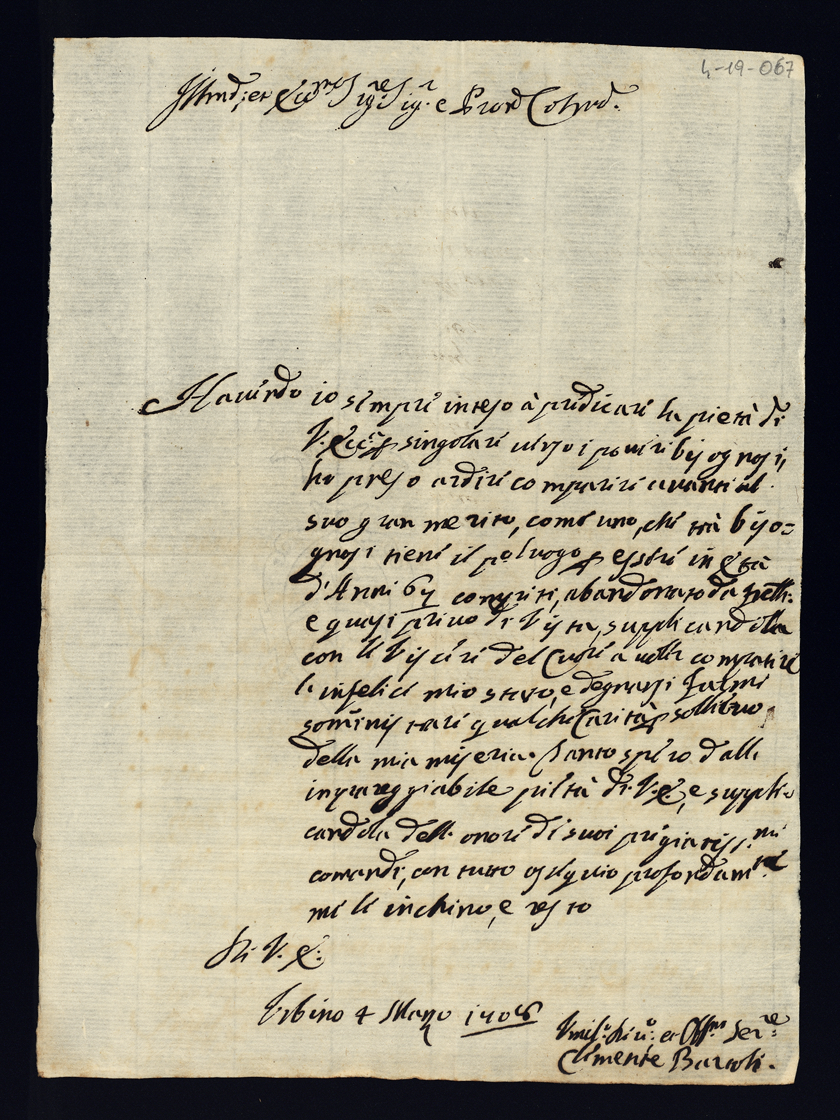 4-19-067
Illmo; et Ecc.mo Sig.re Sig.r e Pron Colmo.
Havendo io sempre inteso à predicare la pietà di
V. Ecc.za singolare verso i poveri bisognosi,
ho preso ardire comparire avanti al
suo gran merito, come uno, che trà biso=
gnosi tiene il po luogo p essere in età
d'Anni compiti, abandonato da tutti
e quasi privo di Vista, supplicandola
con le Viscere del Cuore a voler compatire
l'infelice mio stato, e degnarsi farmi
somministrare qualche Carità p sollievo
della mia miseria. Tanto spero dalla
impareggiabile pietà di V. E., e suppli-
candola dell'onore di suoi pregiatiss.mi
comandi, con tutto ossequio profondam.te
me le inchino, e resto
Di V. E.
Urbino 4 Marzo
Umiliss.o Div.o et Obb.mo Ser.re
Clemente Bartoli.